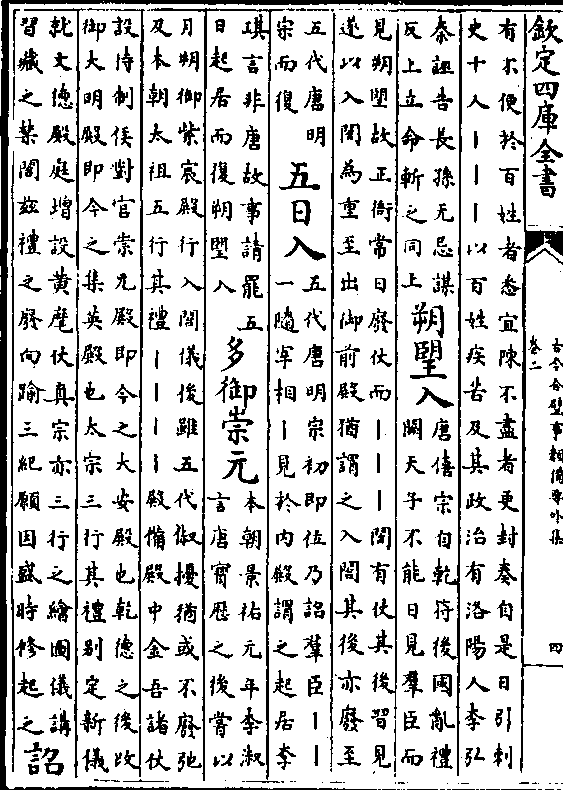 欽定四庫全書
古今合璧事類備要外集
卷二
四
有不便於百姓者悉宜陳不盡者更封奏自是日引刺
史十人｜｜｜以百姓疾苦及其政治有洛陽人李弘
泰誣告長孫无忌謀
反上立命斬之同上
朔朢入
唐僖宗自乾符後國亂禮
闕天子不能日見羣臣而
見朔朢故正衙常日廢仗而｜｜｜閤有仗其後習見
遂以入閤為重至出御前殿猶謂之入閤其後亦廢至
五代唐明
宗而復
五日入
五代唐明宗初即位乃詔羣臣｜｜
一隨宰相｜見於內殿謂之起居李
琪言非唐故事請罷五
日起居而復朔朢入
多御崇元
本朝景祐元年李淑
言唐寳歴之後嘗以
月朔御紫宸殿行入閤儀後雖五代俶擾猶或不廢弛
及本朝太祖五行其禮｜｜｜｜殿備殿中金吾諸仗
設待制候對官崇元殿即今之大安殿也乾德之後改
御大明殿即今之集英殿也太宗三行其禮别定新儀
就文德殿庭增設黄麾仗真宗亦三行之繪圖儀講
習藏之禁閣玆禮之廢向踰三紀願因盛時修起之
詔